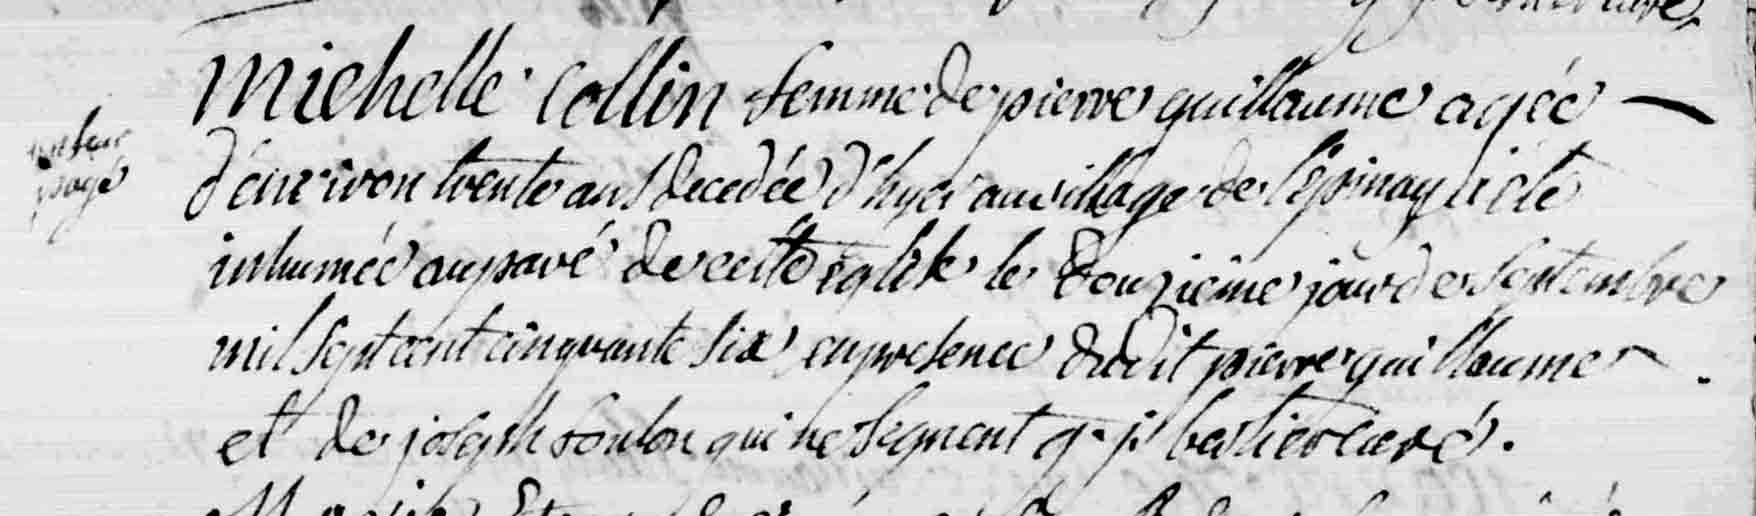 Michelle Collin femme de pierre guillaume agée
d'environ trente ans decedée d'hyer au village de l'épinay a été
inhumée au pavé de cette eglise le douzieme jour de septembre
mil sept cent cinquante six en presence dudit pierre guillaume
et de joseph foulon qui ne segnent g. j. curé.